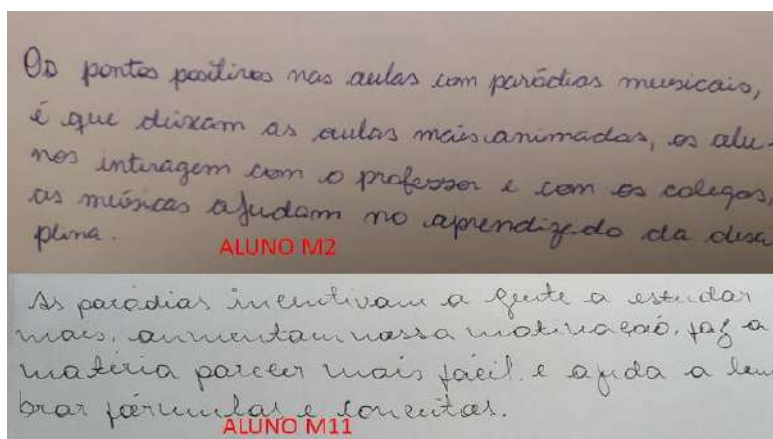 Os pontos positivos nas aulas com paródias musicais,
é que deixam as aulas mais animadas, os alu-
nos interagem com o professor e com os colegas,
as músicas ajudam no aprendizado da disci
plina.
ALUNO M2
As paródias incentivam a gente a estudar
mais, aumentam nossa motivação, faz a
matéria parecer mais fácil e ajuda a lem
brar fórmulas e conceitos.
ALUNO M11